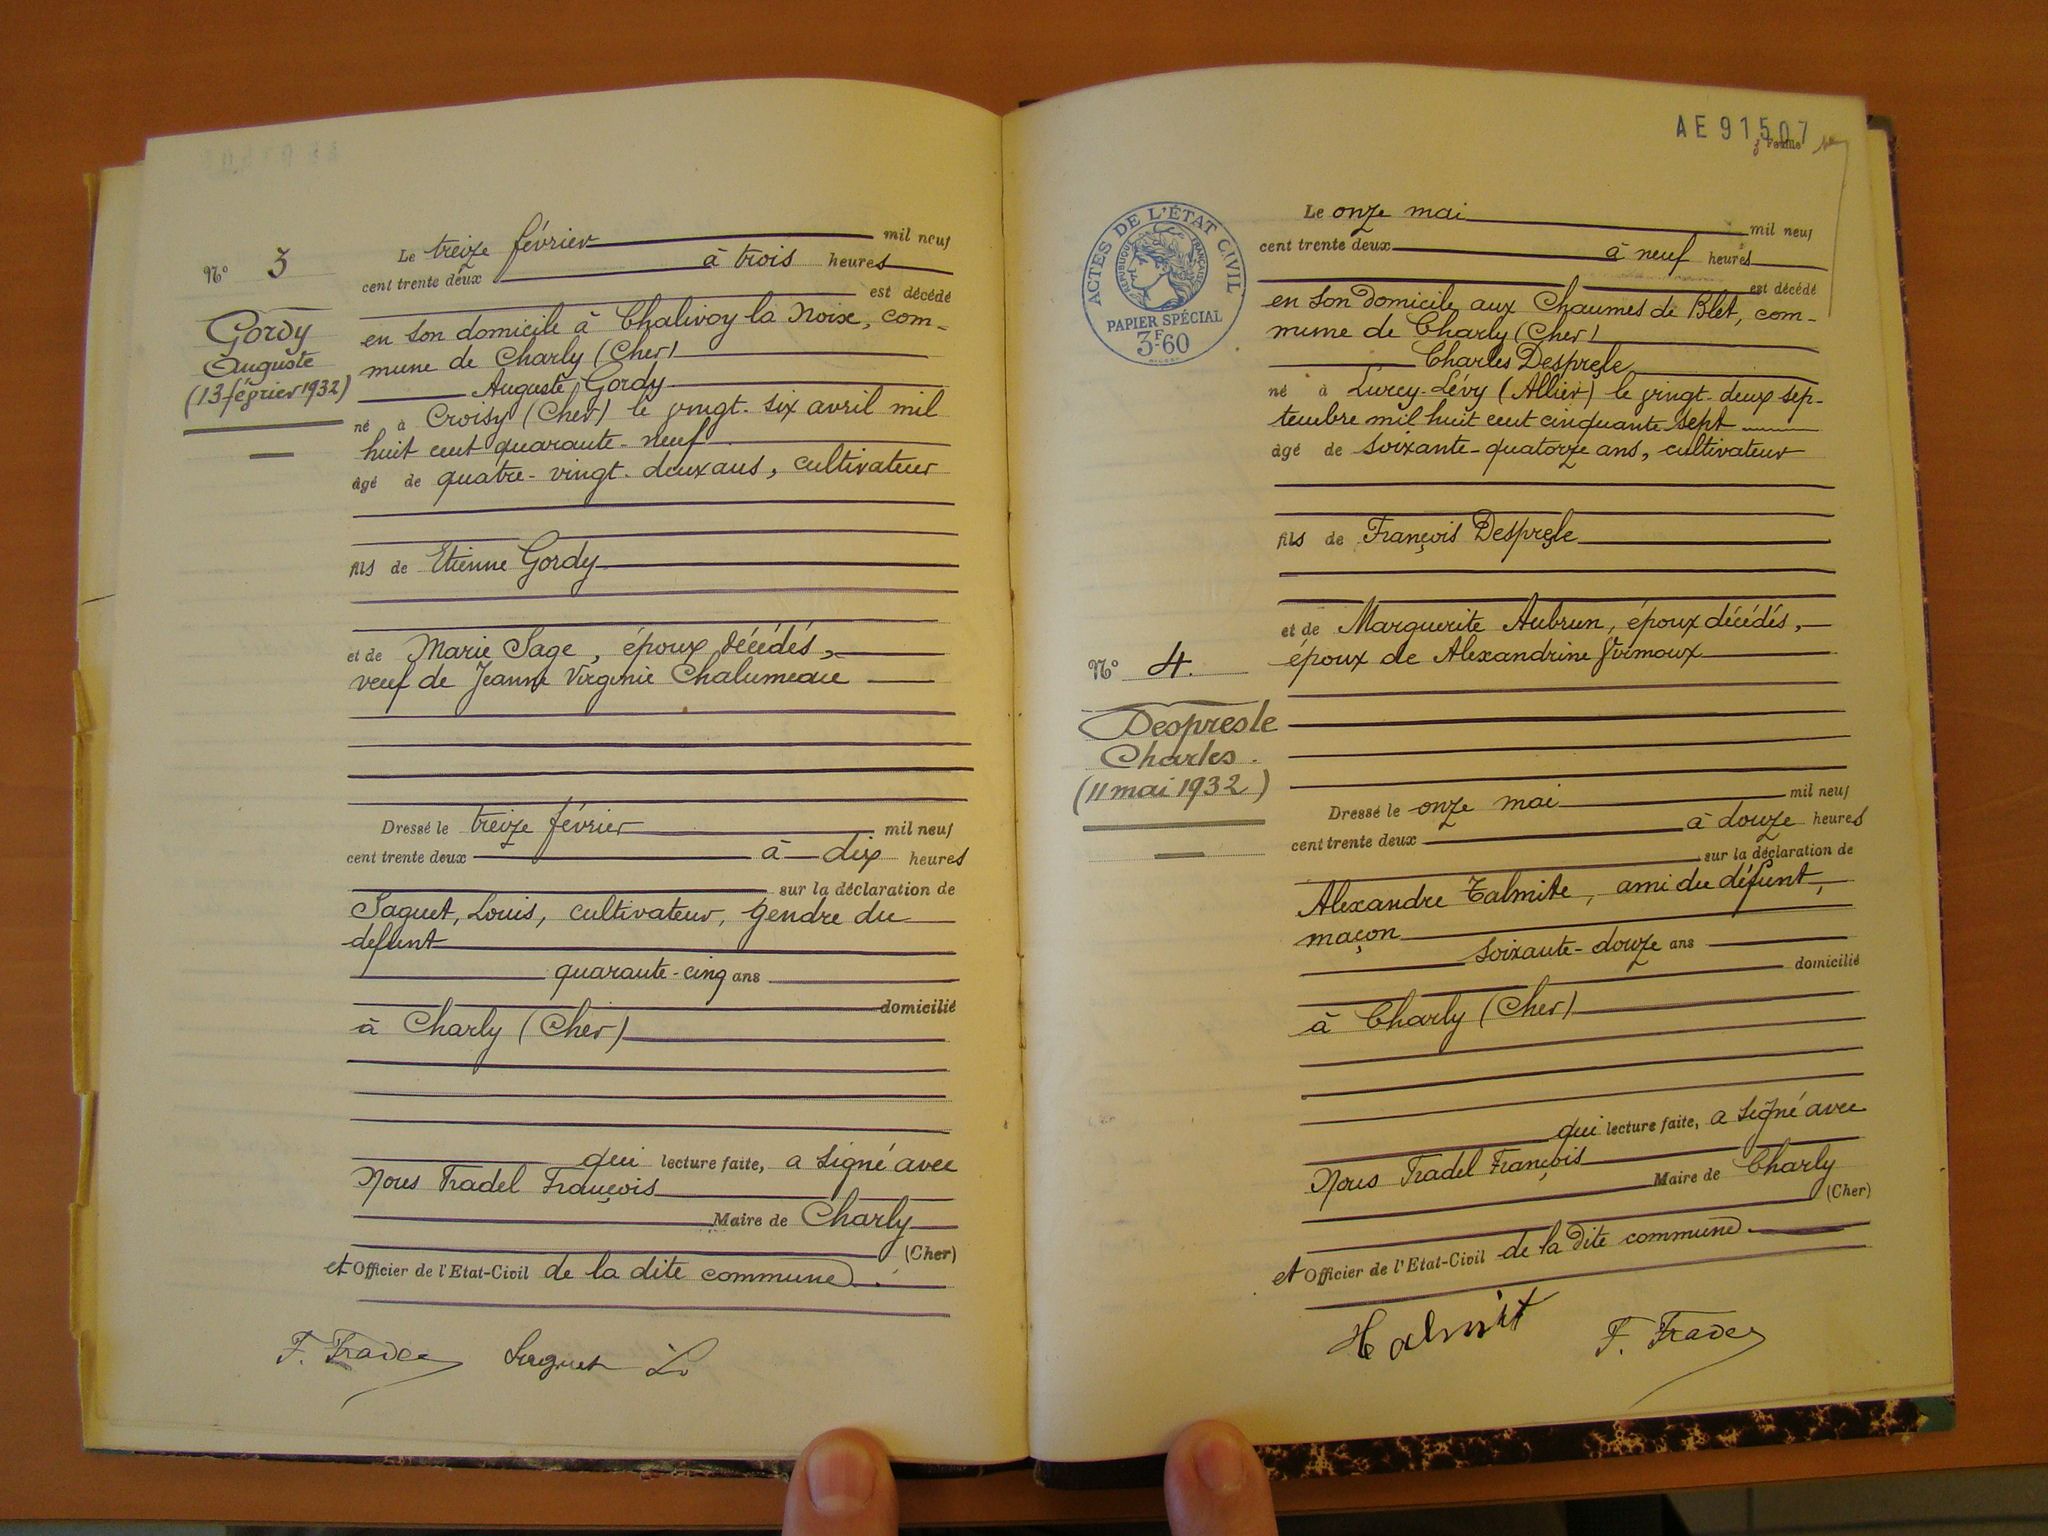 Nº 3
Gordy
Auguste
(13 février 1932)
Le treize février mil neuf
cent trente deux à trois heures
est décédé
en son domicile à Chalivoy la Noix, com-
mune de Charly (Cher)
Auguste Gordy
né à Croisy (Cher) le vingt-six avril mil
huit cent quarante-neuf
âgé de quatre-vingt-deux ans, cultivateur
fils de Etienne Gordy
et de Marie Sage, époux décédés,
veuf de Jeanne Virginie Chalumeau
Dressé le treize février mil neuf
cent trente deux à dix heures
sur la déclaration de
Saguet, Louis, cultivateur, gendre du
defunt
quarante-cinq ans
domicilié
à Charly (Cher)
qui lecture faite, a signé avec
Nous Fradel François
Maire de Charly
(Cher)
et Officier de l'Etat-Civil de la dite commune.
F. Fradel Saguet L.
AE 91507
Feuille
ACTES DE L'ÉTAT CIVIL
RÉPUBLIQUE FRANÇAISE
PAPIER SPÉCIAL
3F.60
Nº 4.
Despresle
Charles.
(11 mai 1932)
Le onze mai mil neuf
cent trente deux à neuf heures
est décédé
en son domicile aux Chaumes de Blet, com-
mune de Charly (Cher)
Charles Despresle
né à Lurcy-Lévy (Allier) le vingt-deux sep-
tembre mil huit cent cinquante-sept
âgé de soixante-quatorze ans, cultivateur
fils de François Despresle
et de Marguerite Aubrun, époux décédés,
époux de Alexandrine
Dressé le onze mai mil neuf
cent trente deux à douze heures
sur la déclaration de
Alexandre Talmite, ami du défunt,
maçon
soixante-douze ans
domicilié
à Charly (Cher)
qui lecture faite, a signé avec
Nous Fradel François
Maire de Charly
(Cher)
et Officier de l'Etat-Civil de la dite commune.
F. Fradel